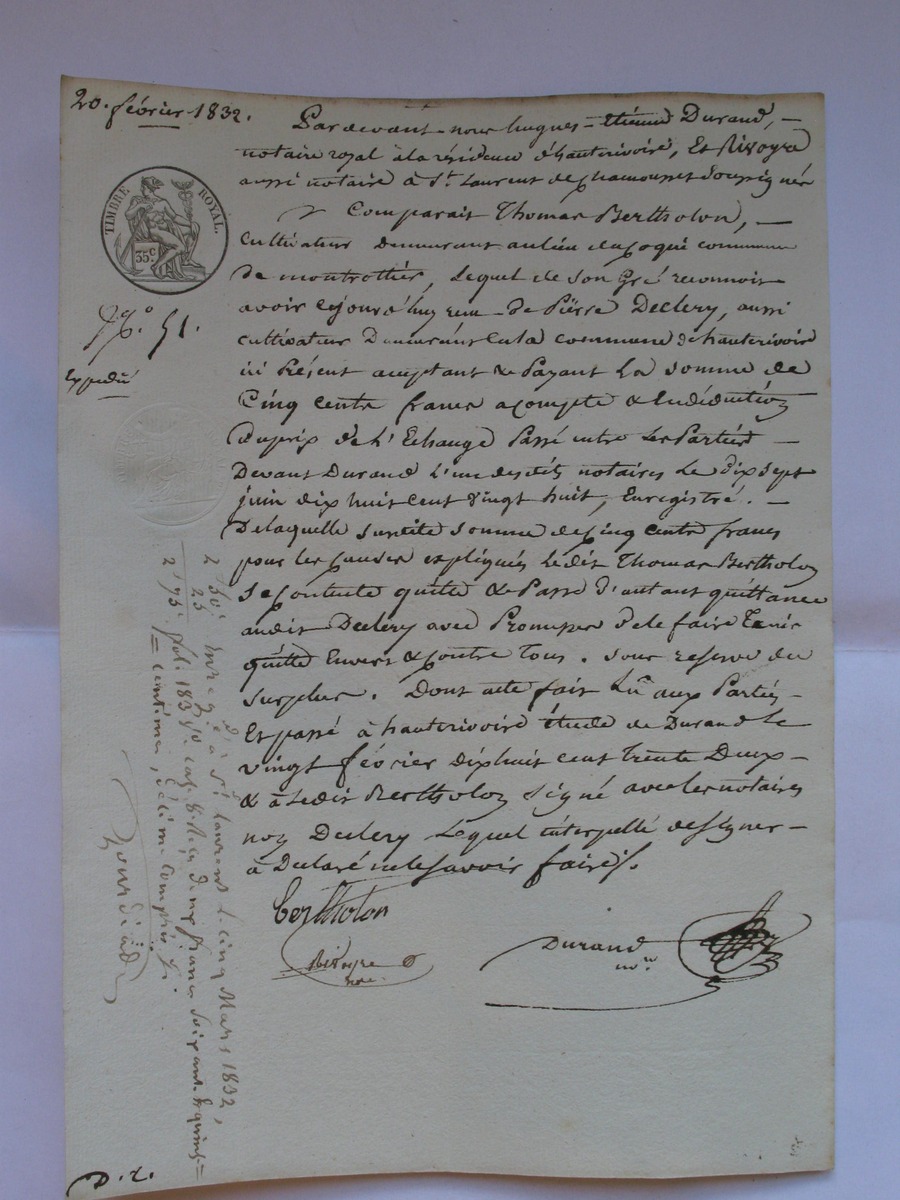 20. février 1832.
Pardevant nous hugues-étienne Durand, —
notaire royal à la résidence d'hauterivoire, Et Rivoyre
aussi notaire à St. Laurent de chamousset Soussignés
Comparait Thomas Bertholon, —
TIMBRE ROYAL.
35c
Cultivateur demeurant au lieu du commune
de montrottier, Lequel de Son Gré reconnoit
avoir cejourd'huy reçu de Pierre Declery, aussi
No. 51.
cultivateur Demeurant commune d'hauterivoire
Expedié
ici Présent acceptant & Payant La Somme de
Cinq cents francs acompte & Endéduction
Duprix de L'Echange Passé entre Les Parties —
Devant Durand L'un desdits notaires Le dix Sept
juin dix huit cent Vingt huit, Enregistré. —
Delaquelle susdite Somme de Cinq cents francs
pour les causes expliqués Ledit Thomas Bertholon
Se Contente quitte & Passe d'autant quittance
audit Declery avec Promesse de le faire Tenir
quitte Envers & contre Tous. Sous reserve du
Surplus. Dont acte fait Lu aux Parties
Et passé à hauterivoire étude de Durand le
vingt février dix huit cent trente Deux —
& a Ledit Bertholon Signé avec les notaires
non Declery Lequel interpellé de Signer —
à Declaré ne le Savoir faire.
bertholon
Rivoyre
nore
Durand
nore
2 f 50 c Enregé à St Laurent le cinq Mars 1832,
25 fol. 183 Vo. Reçu deux francs Soixante & quinze
2 f 75 c centimes, décime compris.
D. L.